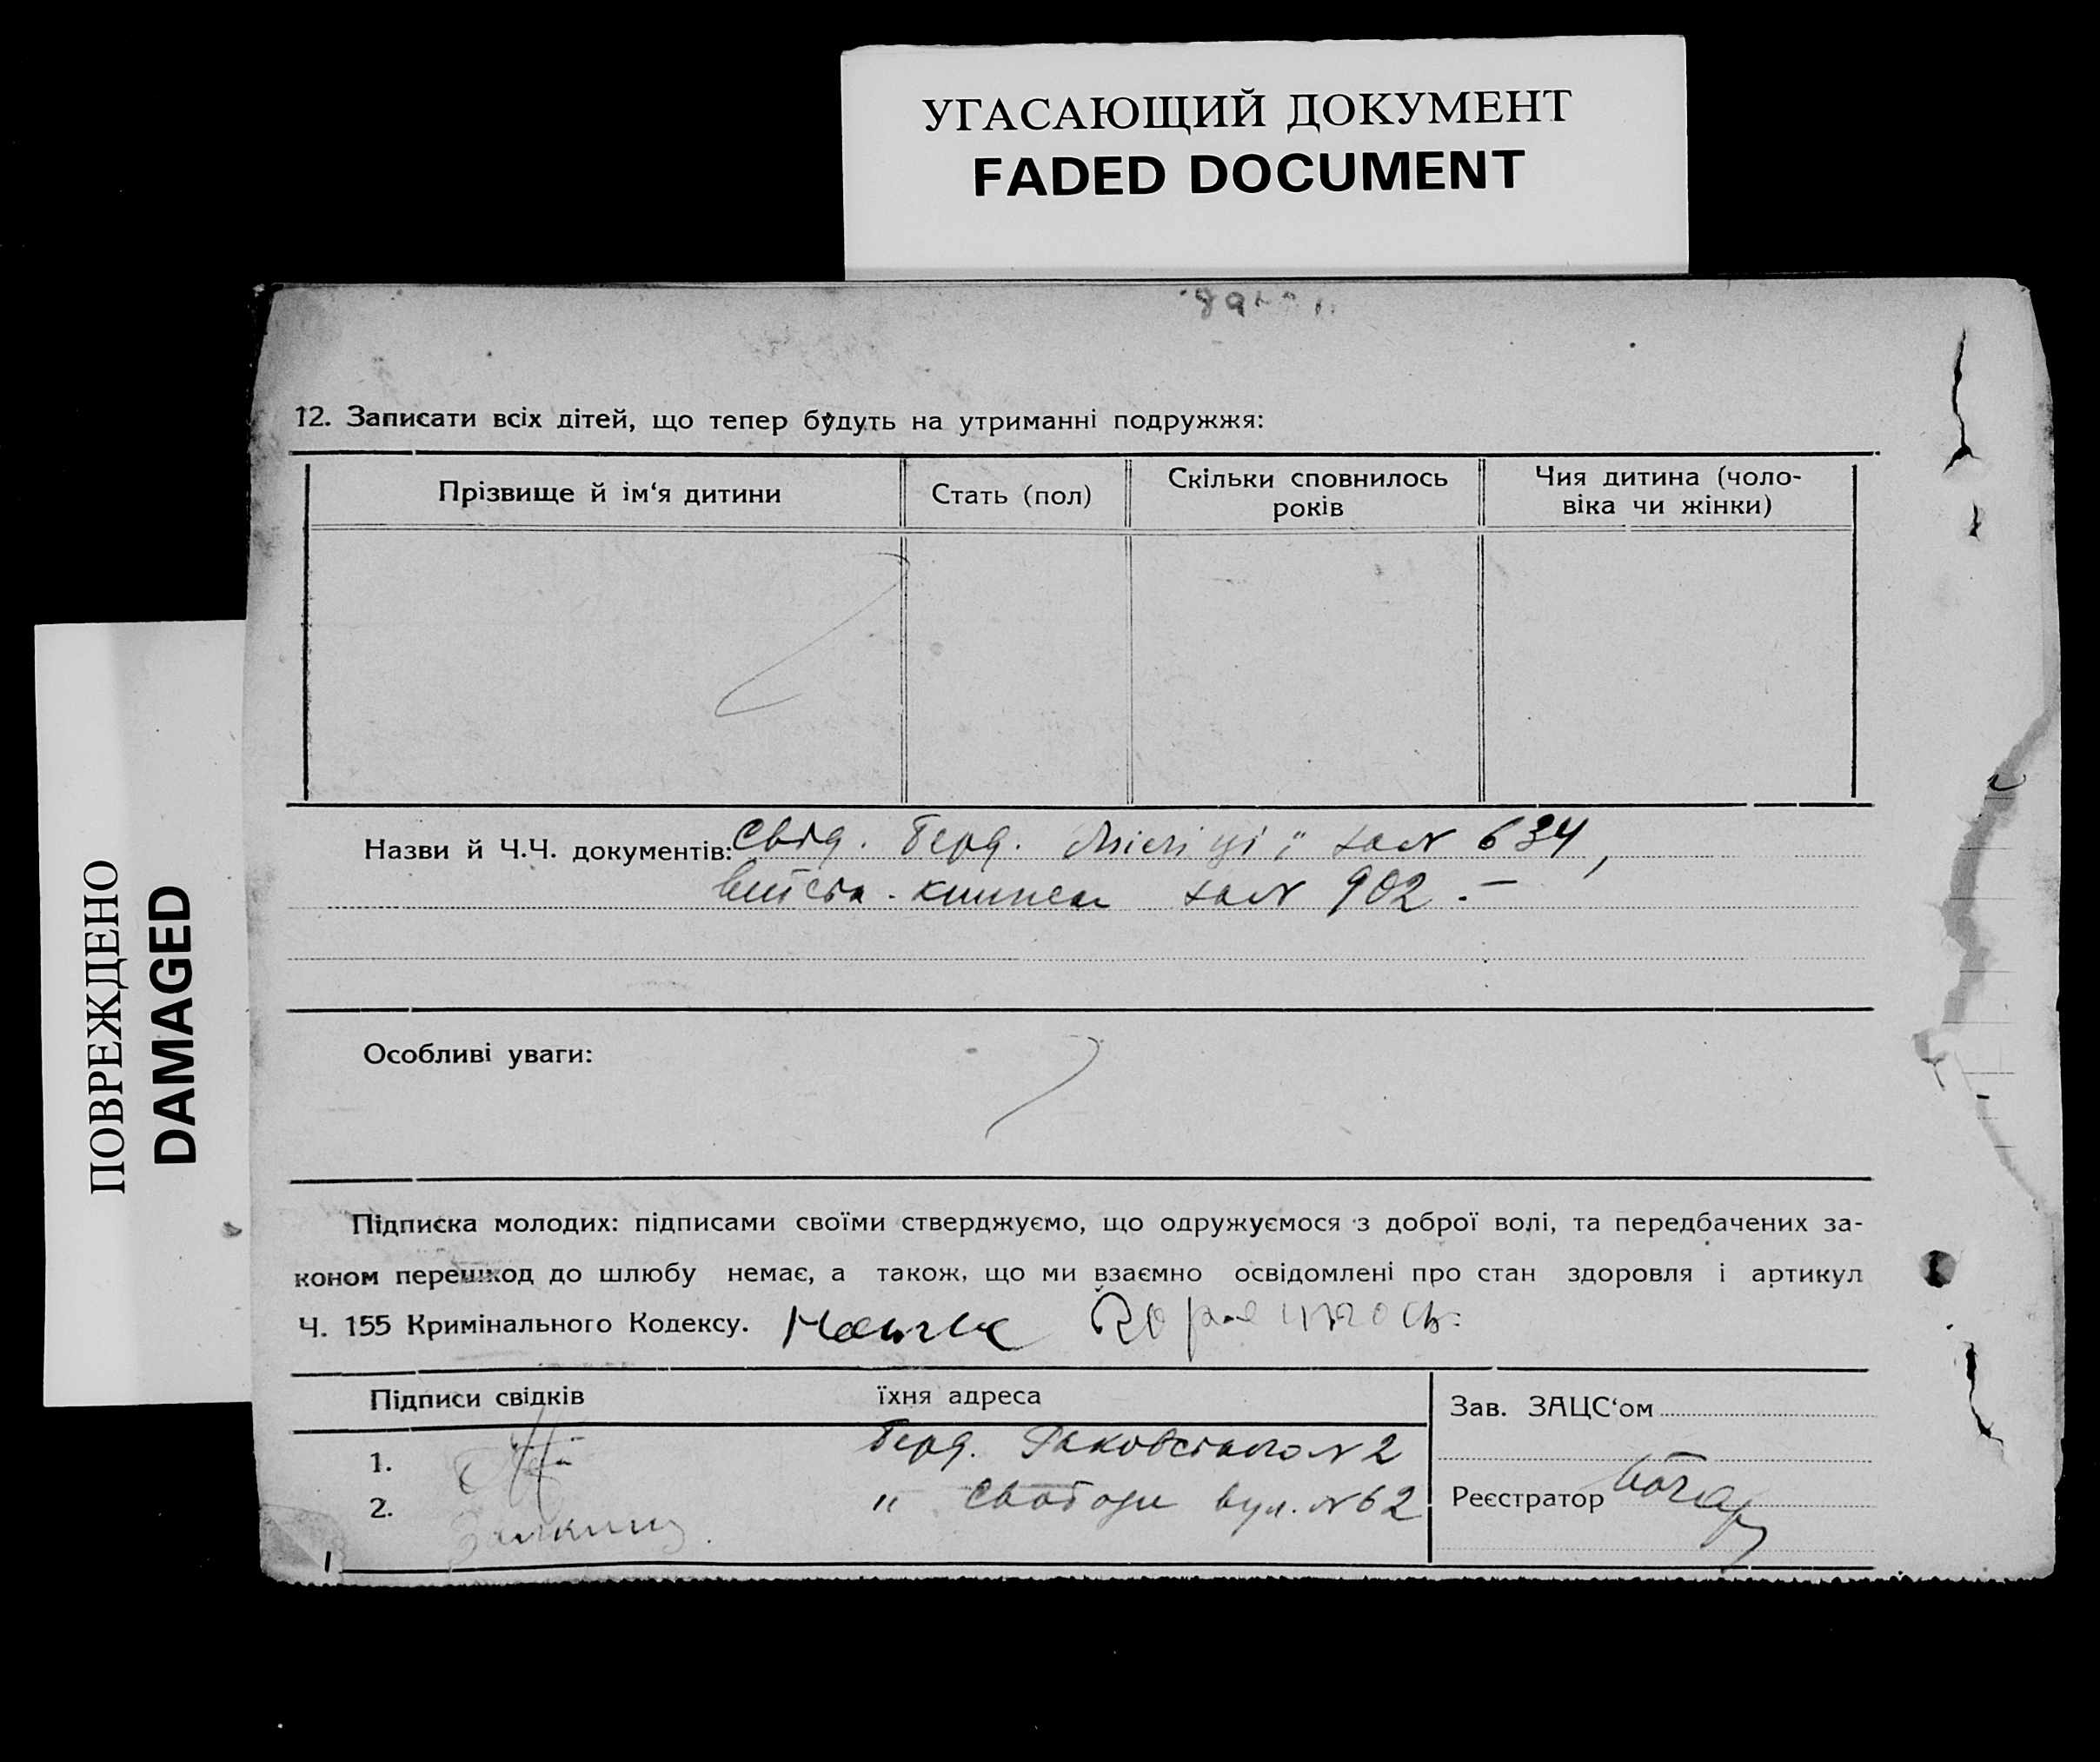 УГАСАЮЩИЙ ДОКУМЕНТ
FADED DOCUMENT
ПОВРЕЖДЕНО
DAMAGED
12. Записати всіх дітей, що тепер будуть на утриманні подружжя:
Прізвище й ім‘я дитини
Стать (пол)
Скільки сповнилось
років
Чия дитина (чоло-
віка чи жінки)
Назви й Ч.Ч. документів: Свід. Берд. Міліції за № 634,
книжка за № 902. –
Особливі уваги:
Підписка молодих: підписами своїми стверджуємо, що одружуємося з доброї волі, та передбачених за-
коном перешкод до шлюбу немає, а також, що ми взаємно освідомлені про стан здоровля і артикул
Ч. 155 Кримінального Кодексу.
Підписи свідків
їхня адреса
Зав. ЗАЦС‘ом
1. Берд. Раковського № 2
2. " Свободи вул. № 62
Реєстратор